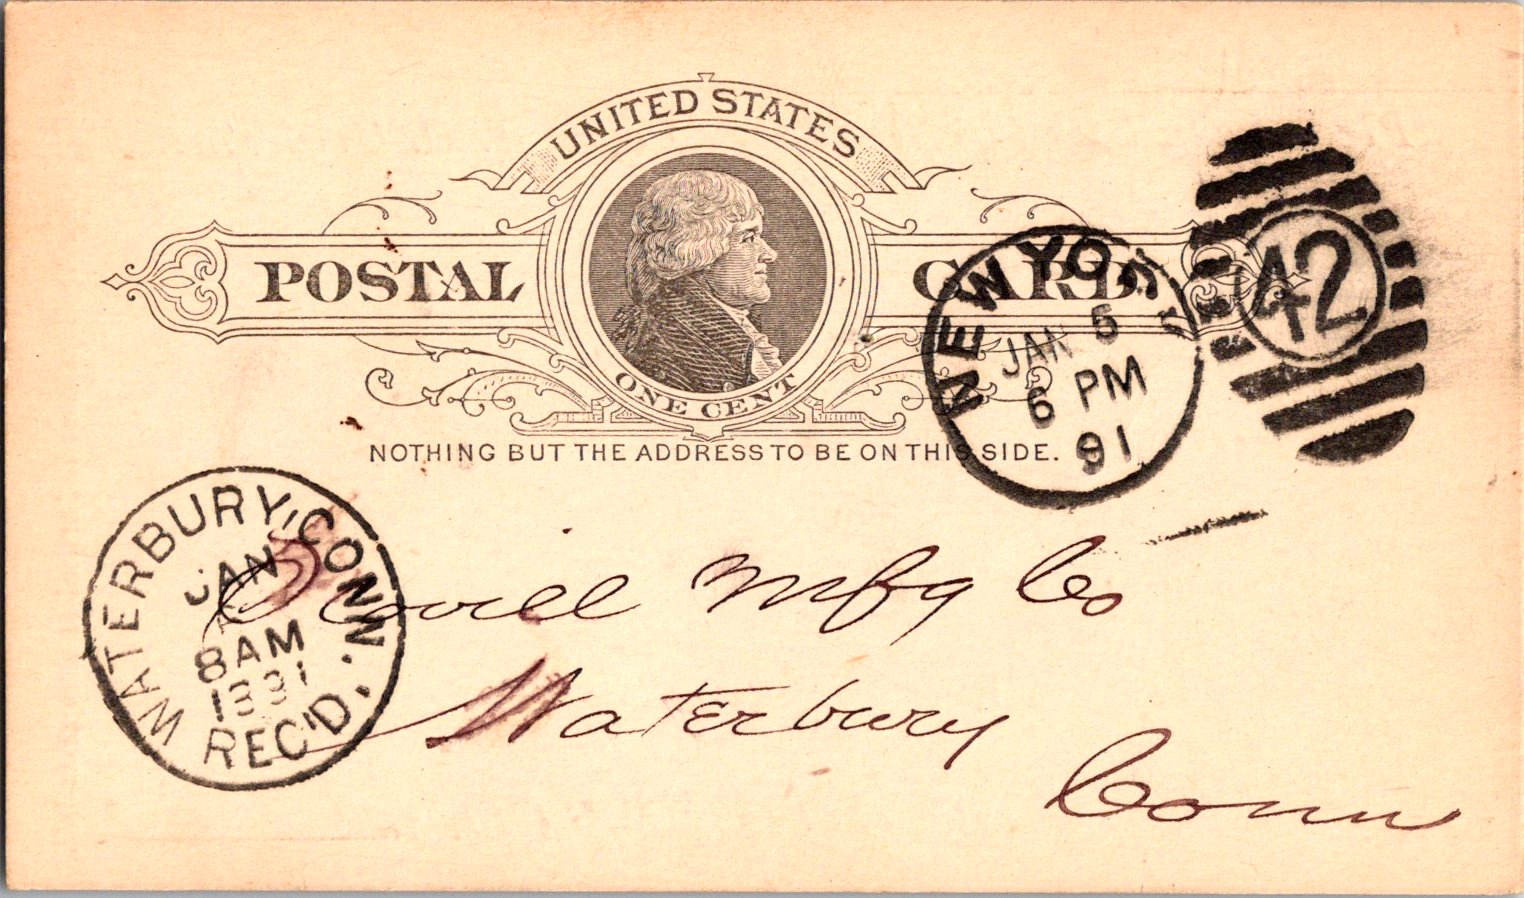 UNITED STATES
POSTAL CARD
ONE CENT
NOTHING BUT THE ADDRESS TO BE ON THIS SIDE.
NEW YORK
JAN 5
6 PM
91
42
WATERBURY, CONN.
JAN
8 AM
1891
REC'D.
Scovill Mfg Co
Waterbury
Conn